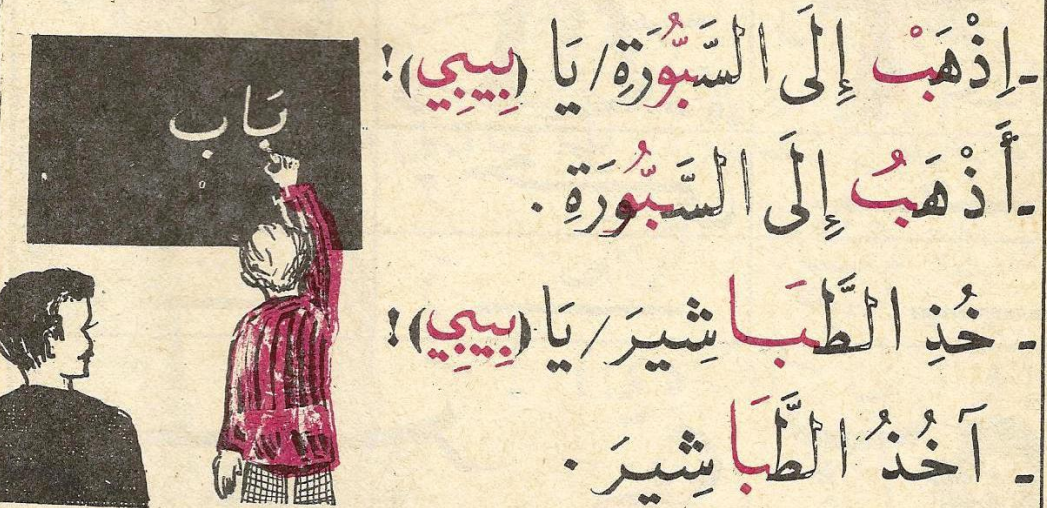 - اِذْهَبْ إِلَى السَّبُّورَةِ/ يَا (بِيبِي)!
- أَذْهَبُ إِلَى السَّبُّورَةِ.
- خُذِ الطَّبَاشِيرَ/ يَا (بِيبِي)!
- آخُذُ الطَّبَاشِيرَ.
بَاب